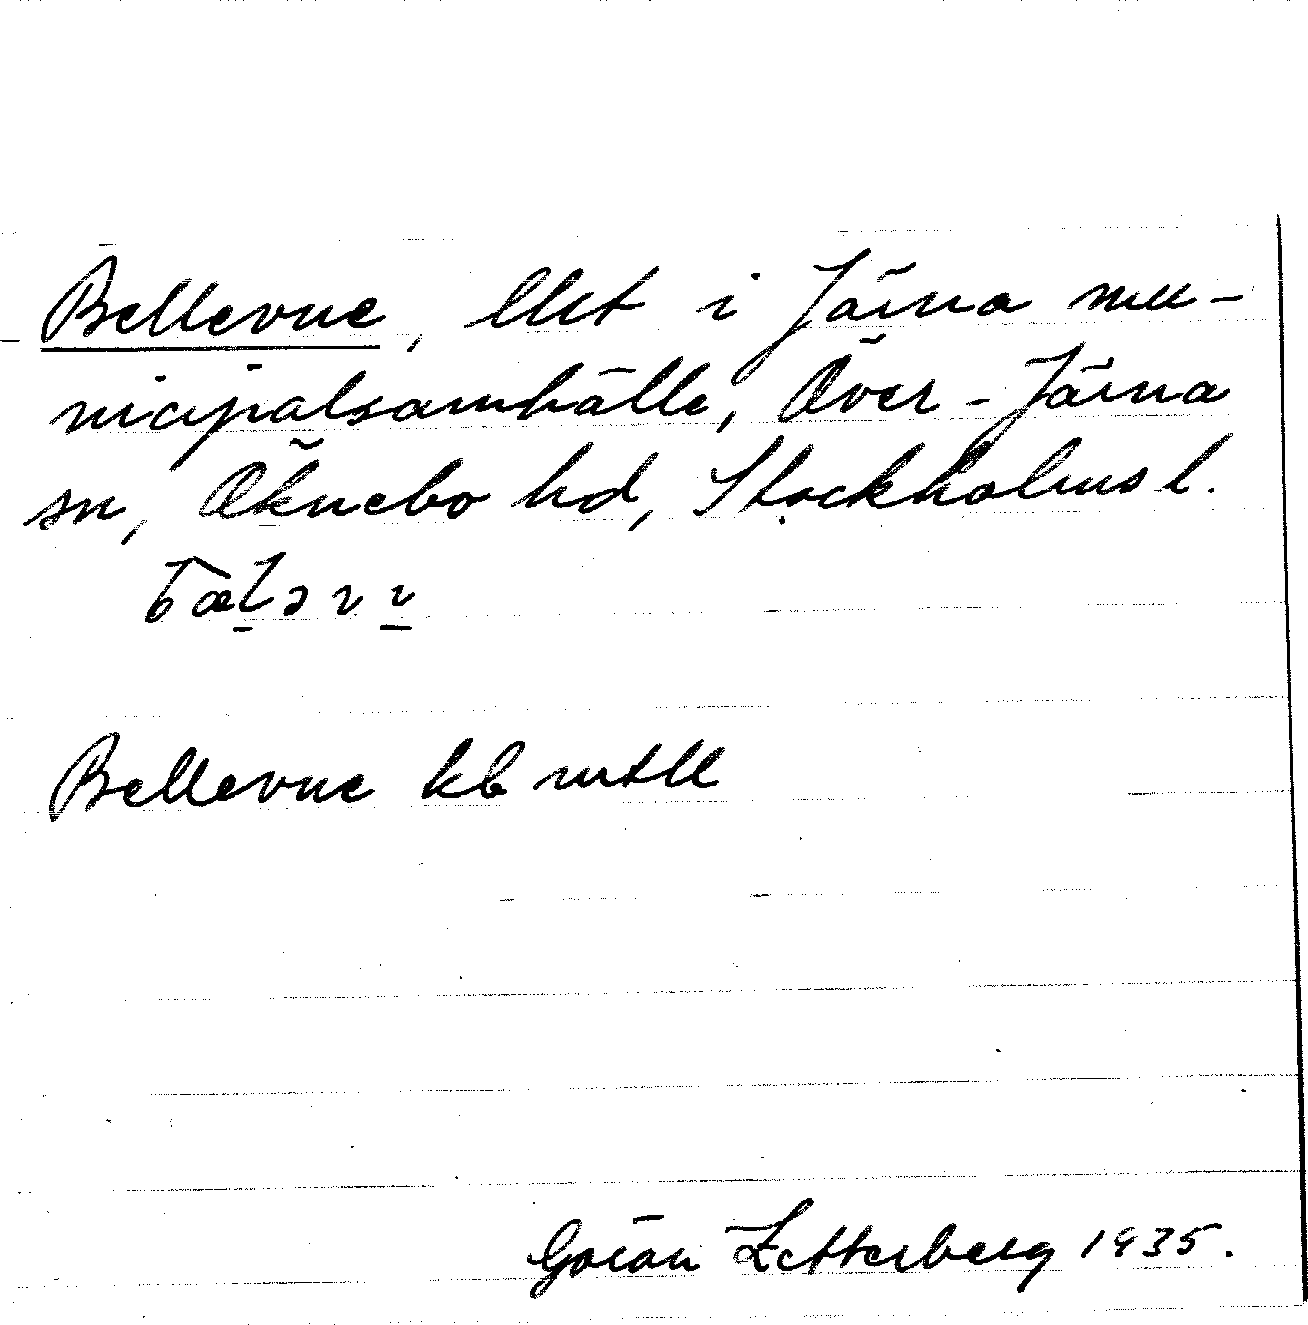 Bellevue, lht i Järna mu-
nicipalsamhälle, Över-Järna
sn, Öknebo hd, Stockholms l.
Bellevue kb mtll
Göran Zetterberg 1935.